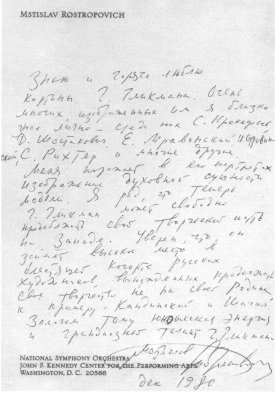 MSTISLAV ROSTROPOVICH
Знаю и горячо люблю
картины Г. Гликмана. Очень
многих, изображенных им я близко
знал лично – среди них С. Прокофьев
Д. Шостакович Е. Мравинский
С. Рихтер и многие другие
Меня поражает в его портретах
изображение духовной сущности
модели. Я рад, что теперь
Г. Гликман может свободно
продолжать свой творческий путь
на Западе. Уверен, что он
займет высокое место в
блестящей когорте русских
художников, вынужденных продолжать
свое творчество не на своей Родине
к примеру Кандинский и Шагал
Залогом тому юношеская энергия
и грандиозный талант Г. Гликмана
Мстислав Ростропович
NATIONAL SYMPHONY ORCHESTRA
JOHN F. KENNEDY CENTER FOR THE PERFORMING ARTS
WASHINGTON, D. C. 20566
дек 1980